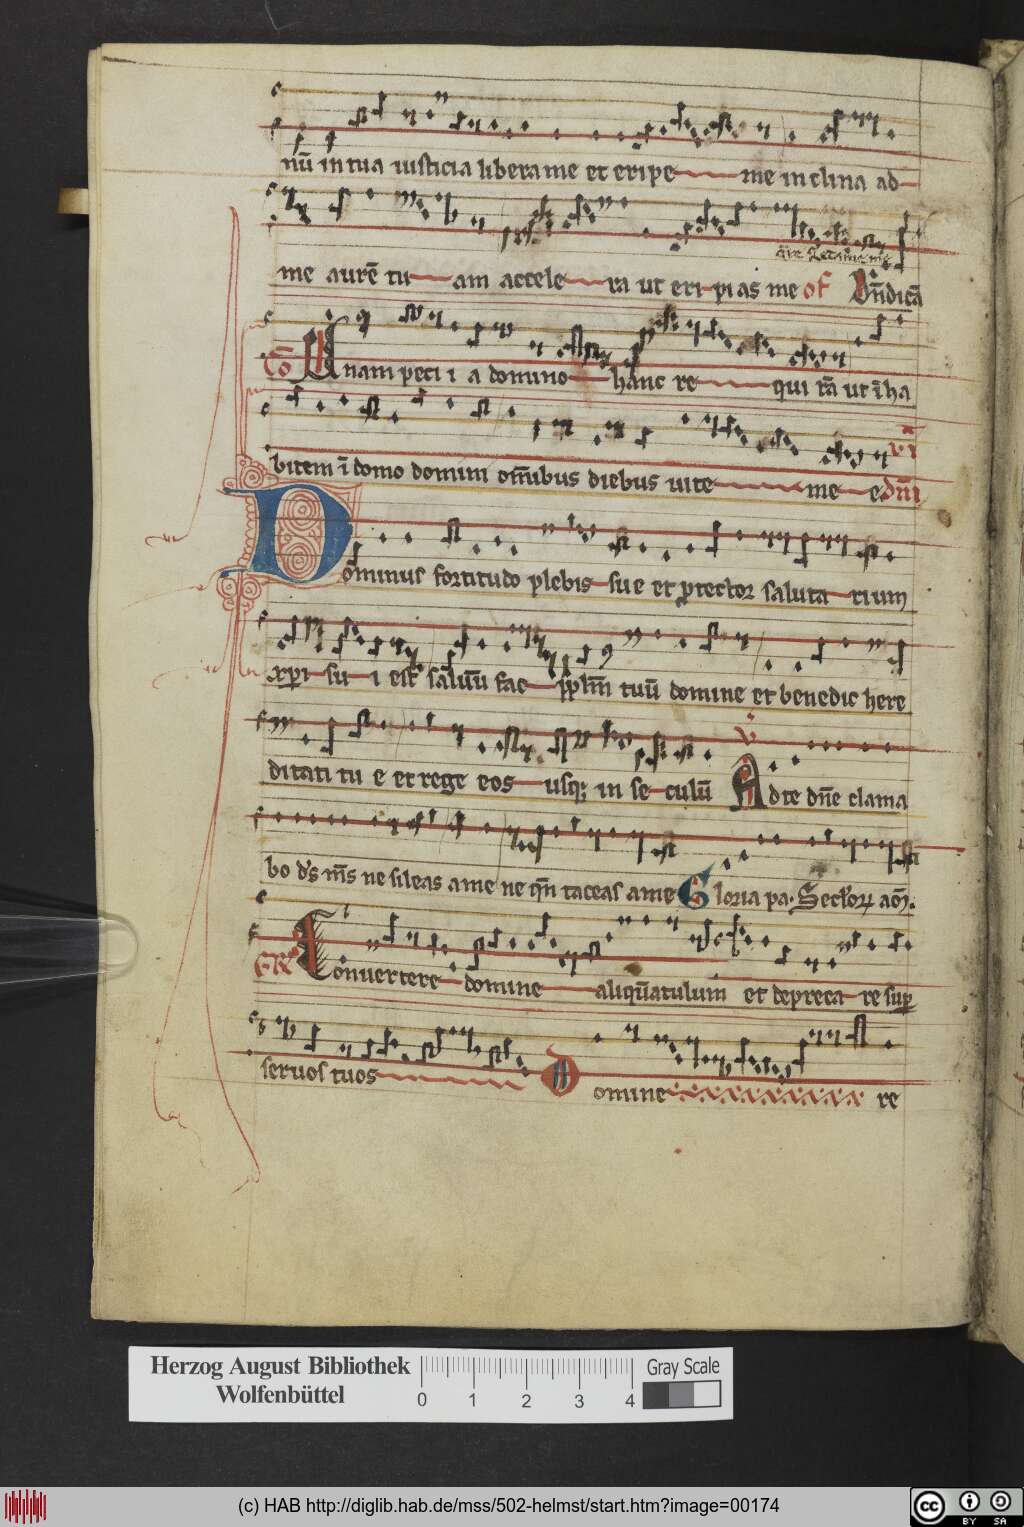 nū in tua iusticia libera me et eripe me inclina ad
me aurē tu am accele ra ut eripias me of Bn̄dicā
Cō Unam peci i a domino hanc re qui rā ut īha
bitem ī domo domini om̄ibus diebus uite me e dn̄i vi
Dominus fortitudo plebis sue et protector saluta rium
xp̄i su i est saluū fac pplm̄ tuū domine et benedic here
ditati tu e et rege eos usq; in se culū V Ad te dn̄e clama
bo ds̄ m̄s ne sileas a me ne qn̄ taceas a me Gloria pa. Sector aō.
GR Convertere domine aliqūatulum et depreca re sup
seruos tuos Domine re
Herzog August Bibliothek
Wolfenbüttel
0 1 2 3 4
Gray Scale
(c) HAB http://diglib.hab.de/mss/502-helmst/start.htm?image=00174
cc BY SA